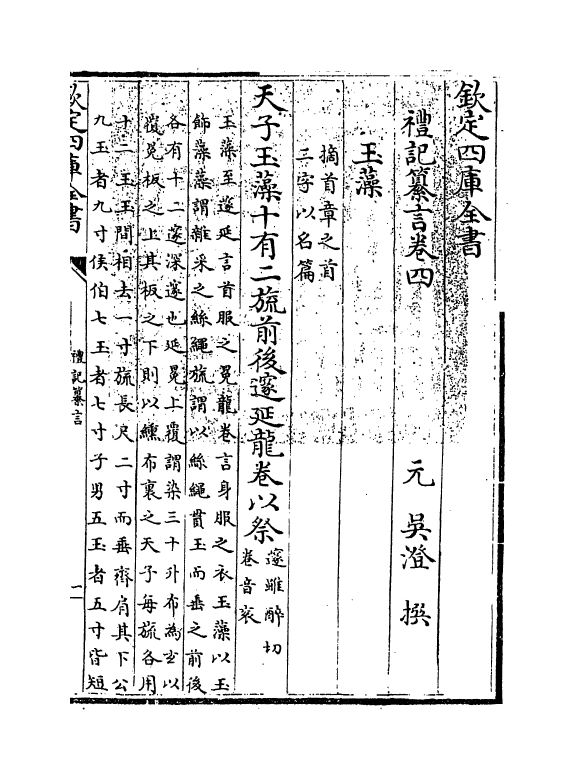 欽定四庫全書
禮記纂言卷四
元 吳澄 撰
玉藻
摘首章之首
二字以名篇
天子玉藻十有二旒前後邃延龍卷以祭
邃雖醉切
卷音衮
玉藻至邃延言首服之冕龍卷言身服之衣玉藻以玉
飾藻藻謂雜采之絲繩旒謂以絲繩貫玉而垂之前後
各有十二邃深邃也延冕上覆謂染三十升布為𤣥以
覆冕板之上其板之下則以纁布裏之天子每旒各用
十二玉玉間相去一寸旒長尺二寸而垂齊肩其下公
九玉者九寸侯伯七玉者七寸子男五玉者五寸皆短
欽定四庫全書
禮記纂言